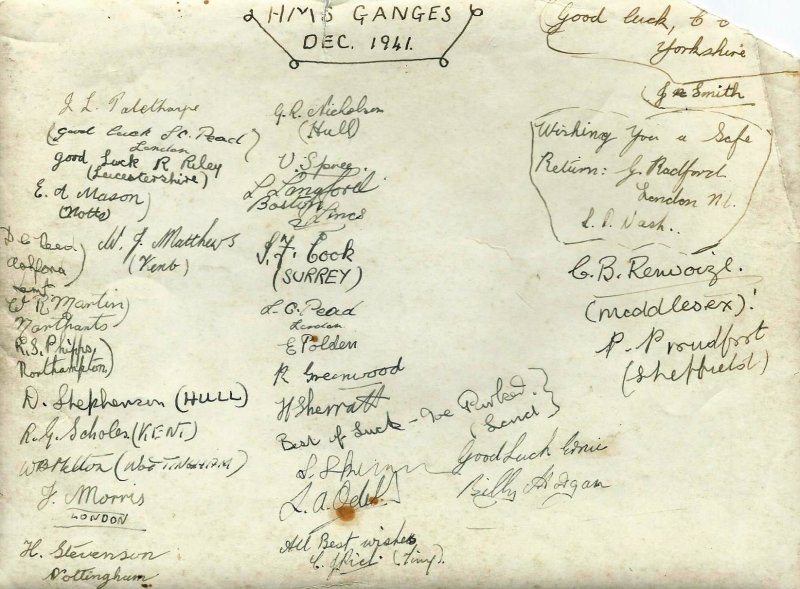 HMS GANGES
DEC. 1941.
Good luck, to
Yorkshire
Smith
J L Palethorpe
(Good luck L.C. Pead
London
Good Luck R Riley
(Leicestershire)
E. A Mason
(Notts)
D C Read
Ashford
Kent
W. J. Matthews
(Kent)
W R Martin
Northants
R.S. Phipps
Northampton)
D. Stephenson (HULL)
R.G. Scholes (KENT)
(NOTTINGHAM)
J. Morris
LONDON
H. Stevenson
Nottingham
G.R. Nicholson
(Hull)
V. Spree.
L Langford
Boston
Lincs
S.J. Cock
(SURREY)
L.C. Pead
London
E Polden
R Greenwood
H Sherratt
Best of Luck - Joe
L.A. Odell
All Best wishes
(Tiny).
Wishing You a Safe
Return: G. Radford.
London N1.
Nash.
C.B. Renvoize.
(Middlesex)!
P. Proudfoot
(Sheffield)
Good Luck Ernie
Billy Horgan